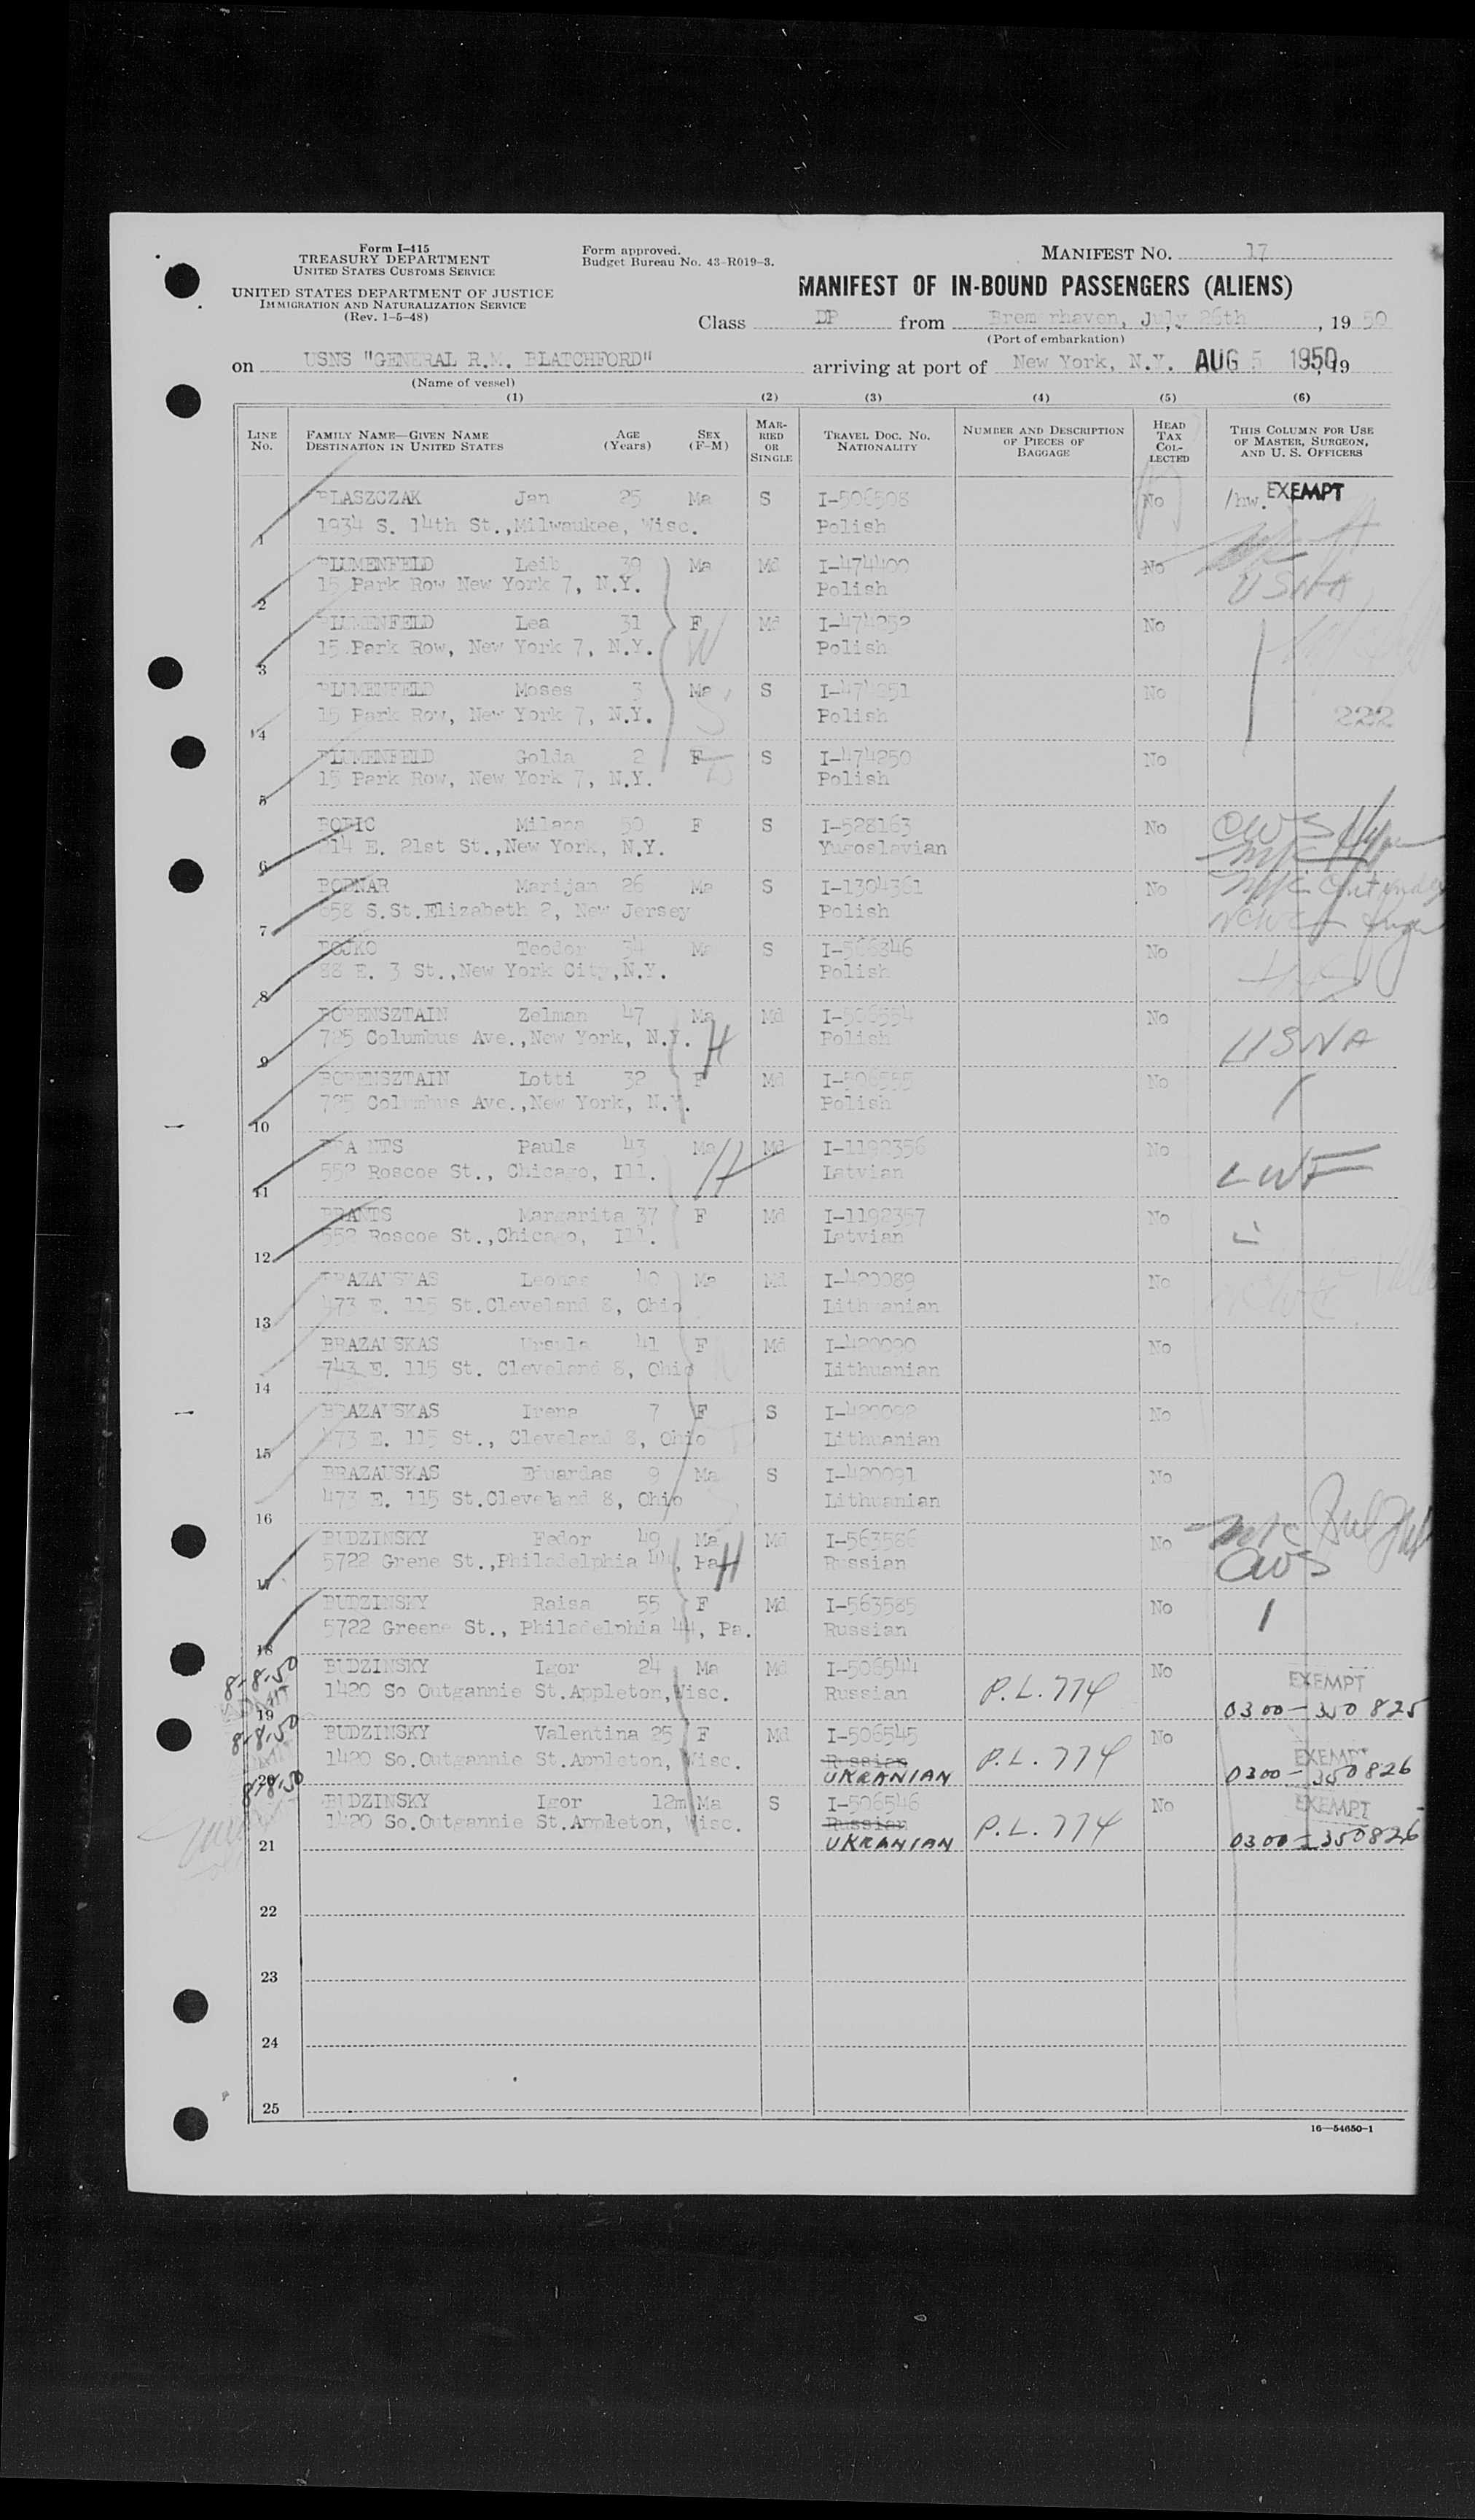 Form I-415
TREASURY DEPARTMENT
UNITED STATES CUSTOMS SERVICE
UNITED STATES DEPARTMENT OF JUSTICE
IMMIGRATION AND NATURALIZATION SERVICE
(Rev. 1-5-48)
Form approved.
Budget Bureau No. 43-R019-3.
MANIFEST NO. 17
MANIFEST OF IN-BOUND PASSENGERS (ALIENS)
Class DP from Bremerhaven, July 26th, 1950
(Port of embarkation)
on USNS "GENERAL R.M. BLATCHFORD" arriving at port of New York, N.Y. AUG 5 1950, 19
(Name of vessel)
(1) (2) (3) (4) (5) (6)
LINE No. FAMILY NAME—GIVEN NAME DESTINATION IN UNITED STATES AGE (Years) SEX (F-M) MARRIED OR SINGLE TRAVEL DOC. NO. NATIONALITY NUMBER AND DESCRIPTION OF PIECES OF BAGGAGE HEAD TAX COLLECTED THIS COLUMN FOR USE OF MASTER, SURGEON, AND U. S. OFFICERS
BLASZCZAK Jan 25 Ma S I-506508 No /hw. EXEMPT
1 1934 S. 14th St.,Milwaukee, Wisc. Polish
BLUMENFELD Leib 39 Ma Md I-474400 No
2 15 Park Row New York 7, N.Y. Polish USNA
BLUMENFELD Lea 31 F Md I-474252 No
3 15 Park Row, New York 7, N.Y. Polish
BLUMENFELD Moses 3 Ma S I-474251 No
4 15 Park Row, New York 7, N.Y. Polish 222
BLUMENFELD Golda 2 F S I-474250 No
5 15 Park Row, New York 7, N.Y. Polish
Milana 50 F S I-528163 No CWS
6 314 E. 21st St.,New York, N.Y. Yugoslavian
BODNAR Marijan 26 Ma S I-1304361 No
7 658 S.St.Elizabeth 2, New Jersey Polish NCWC
BOJKO Teodor 54 Ma S I-566346 No
8 88 E. 3 St.,New York City,N.Y. Polish
BORENSZTAIN Zelman 47 Ma Md I-506554 No
9 725 Columbus Ave.,New York, N.Y. H Polish USNA
BORENSZTAIN Lotti 32 F Md I-506555 No
10 725 Columbus Ave.,New York, N.Y. Polish
BRANTS Pauls 43 Ma H Md I-1192356 No
11 552 Roscoe St., Chicago, Ill. Latvian LWF
BRANTS Margarita 37 F Md I-1192357 No
12 552 Roscoe St.,Chicago, Ill. Latvian
BRAZAUSKAS Leonas 40 Ma Md I-420089 No
13 473 E. 115 St.Cleveland 8, Ohio Lithuanian
BRAZAUSKAS Ursula 41 F Md I-420090 No
14 743 E. 115 St. Cleveland 8, Ohio Lithuanian
BRAZAUSKAS Irena 7 F S I-420092 No
15 473 E. 115 St., Cleveland 8, Ohio Lithuanian
BRAZAUSKAS Eduardas 9 Ma S I-420091 No
16 473 E. 115 St.Cleveland 8, Ohio Lithuanian
BUDZINSKY Fedor 49 Ma Md I-563586 No
17 5722 Grene St.,Philadelphia 44, Pa H Russian CWS
BUDZINSKY Raisa 55 F Md I-563585 No
18 5722 Greene St., Philadelphia 44, Pa. Russian
8-8-50 BUDZINSKY Igor 24 Ma Md I-506544 P.L. 774 No EXEMPT
19 1420 So Outgannie St.Appleton,Wisc. Russian 0300-350825
8-8-50 BUDZINSKY Valentina 25 F Md I-506545 P.L. 774 No EXEMPT
20 1420 So.Outgannie St.Appleton, Wisc. Russian UKRANIAN 0300-350826
8-8-50 BUDZINSKY Igor 12m Ma S I-506546 P.L. 774 No EXEMPT
21 1420 So.Outgannie St.Appleton, Wisc. Russian UKRANIAN 0300-350826
22
23
24
25
16—54650-1